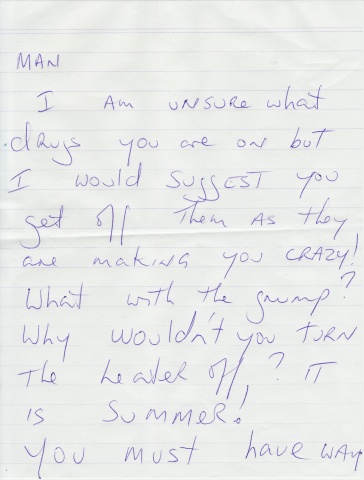 MAN
I AM UNSURE what
drugs you are on but
I would SUGGEST you
get off Them AS they
are making you CRAZY!
What with the grump?
Why wouldn't you TURN
The heater off,? IT
is SUMMER!
You must have WAY